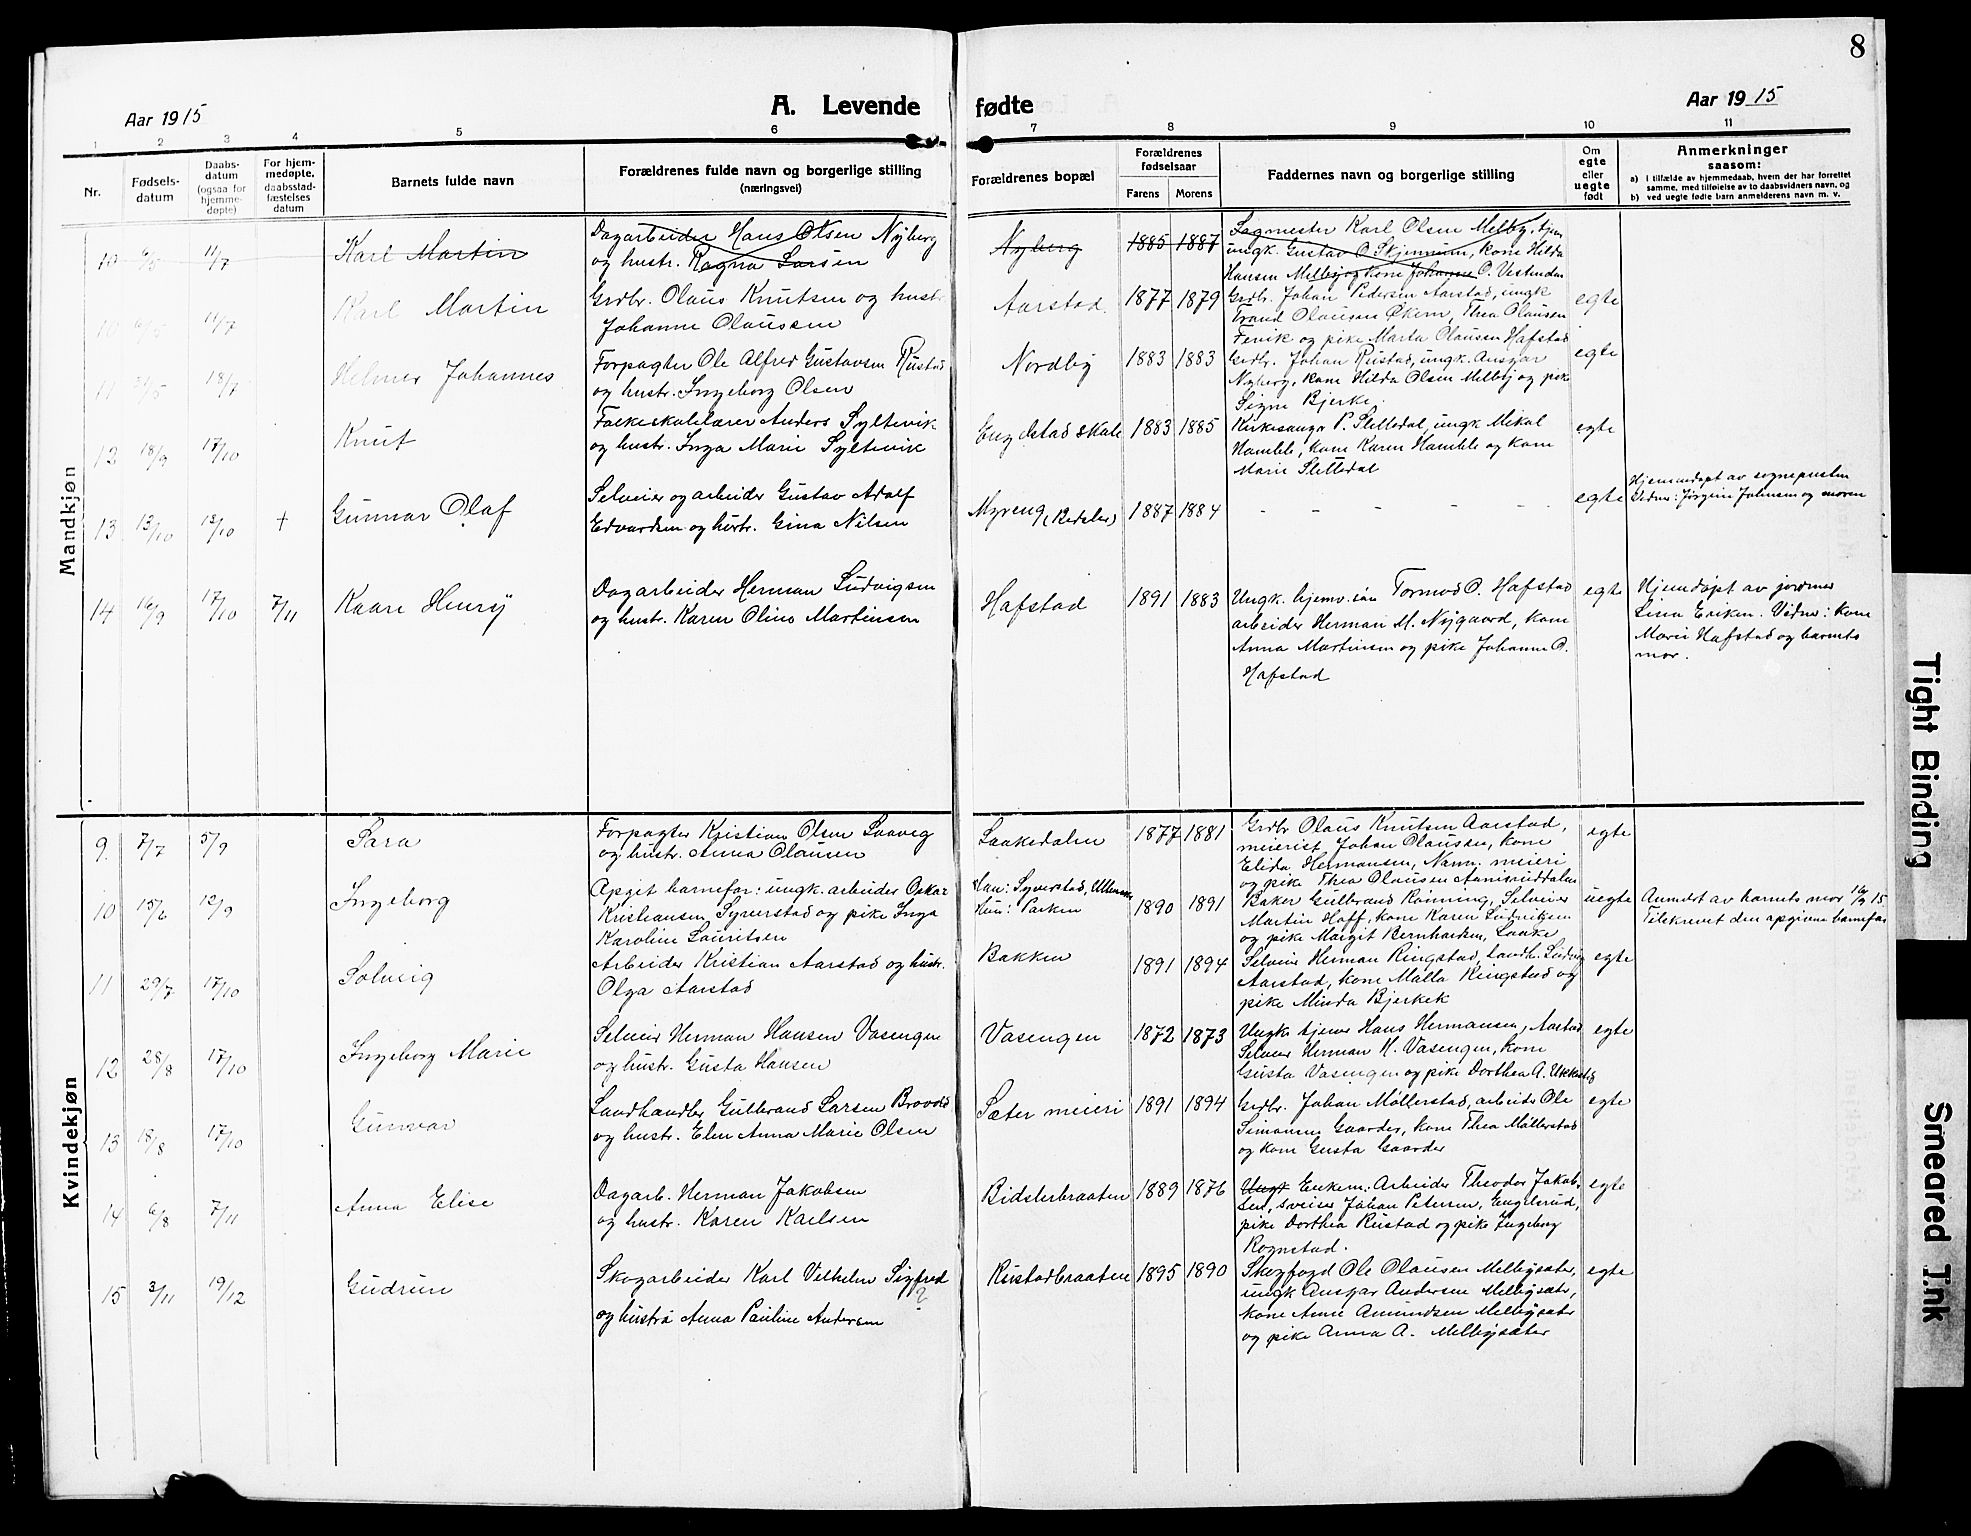 8
Aar 1915
A. Levende fødte
Aar 1915
1 2 3 4 5 6 7 8 9 10 11
Nr.
Fødsels-
datum
Daabs-
datum
(ogsaa for
hjemme-
døpte)
For hjem-
medøpte,
daabsstad-
fæstelses
datum
Barnets fulde navn
Forældrenes fulde navn og borgerlige stilling
(næringsvei)
Forældrenes bopæl
Forældrenes
fødselsaar
Farens Morens
Faddernes navn og borgerlige stilling
Om
egte
eller
uegte
født
Anmerkninger
saasom:
a) i tilfælde av hjemmedaab, hvem der har forrettet
samme, med tilføielse av to daabsvidners navn, og
b) ved uegte fødte barn anmelderens navn m. v.
Mandkjøn
10 6/5 11/7 Karl Martin
Dagarbeider Hans Olsen Nyberg
og hustr. Ragna Larsen
Nyberg 1885 1887
Sagmester Karl Olsen Melby, tjen
ungk. Gustav O. Skjennum, kone Hilda
Hansen Melby og kone Johanne O.
10 6/5 11/7 Karl Martin
Grdbr. Olaus Knutsen og hustr
Johanne Olaussen
Aarstad. 1877 1879
Grdbr. Johan Pedersen Aarstad, ungk
Trand Olausen Økern, Thea Olausen
Fevik og pike Marta Olausen Hafstad
egte
11 18/7 Helmer Johannes
Forpagter Ole Alfred Gustavsen Rustad
og hustr. Ingeborg Olsen
Nordby 1883 1883
Grdbr. Johan Rustad, ungk. Ansgar
Nyberg, kone Hilda Olsen Melby og pike
Signe Bjerke.
egte
12 18/9 17/10 Knut
Folkeskolelærer Anders Syltevik
og hustr. Inga Marie Syltevik
Engelstad skole 1883 1885
Kirkesanger P. Slettedal, ungk Mikal
Hamble, kone Karen Hamble og kone
Marie Slettedal
egte
13 13/10 13/10 + Gunnar Olaf
Selveier og arbeider Gustav Adolf
Edvardsen og hustr. Gina Nilsen
Myreng 1887 1884
- - - - - -
egte
Hjemmedøpt av sognepresten
Vidner: Jørgine Johnsen og moren
14 16/9 17/10 7/11 Kaare Henry
Dagarbeider Herman Ludvigsen
og hustr. Karen Oline Martinsen
Hafstad 1891 1883
Ungk. hjemv. søn Tormod O. Hafstad
arbeider Herman M. Nygaard, kone
Anna Martinsen og pike Johanne O.
Hafstad
egte
Hjemdøpt av jordmor
Lina Eriksen. Vidner: kone
Marie Hafstad og barnets
mor.
Kvindekjøn
9. 7/7 5/9 Sara
Forpagter Kristian Olsen Laaveg
og hustr. Anna Olausen
Laakedalen 1877 1881
Grdbr Olaus Knutsen Aarstad,
meierist Johan Olaussen, kone
Elida Hermansen, Nann. meieri
og pike Thea Olausen
egte
10 15/6 12/9 Ingeborg
Opgit barnefar: ungk. arbeider Oskar
Kristiansen, Syverstad og pike Inga
Karoline Lauritsen
Han: Syverstad, Ullensaker
Hun: Parken
1890 1891
Baker Gulbrand Rönning, Selveier
Martin Hoff, kone Karen Ludvigsen
og pike Margit Bernhardsen, Laake
uegte
Anmeldt av barnets mor 16/9 15
Tilskrevet den opgivne barnefar
11 29/7 17/10 Solveig
Arbeider Kristian Aarstad og hustr.
Olga Aarstad
Bakken 1891 1894
Selveier Herman Ringstad, Landh. Ludvig
Aarstad, kone Malla Ringstad og
pike Minda Bjerkek
egte
12 28/8 17/10 Ingeborg Marie
Selveier Herman Hansen Vasengen
og hustr. Gusta Hansen
Vasengen 1872 1873
Ungk tjener Hans Hermansen, Aarstad
Selveier Herman H. Vasengen, kone
Gusta Vasengen og pike Dorthea A. Ukkestad
egte
13 18/8 17/10 Gunvor
Landhandler Gulbrand Larsen Brovold
og hustr. Elen Anna Marie Olsen
Sæter meieri 1891 1894
Grdbr. Johan Möllerstad, arbeider Ole
Simonsen Gaarder, kone Thea Möllerstad
og kone Gusta Gaarder
egte
14 6/8 7/11 Anna Elise
Dagarb. Herman Jakobsen
og hustr. Karen Karlsen
Bidslerbraaten 1889 1876
Ungk Enkem: Arbeider Theodor Jakob-
sen, sveiser Johan Petersen, Englerud,
pike Dorthea Rustad og pike Ingeborg
Rognstad.
egte
15 3/11 19/12 Gudrun
Skogarbeider Karl Vilhelm Sigfred
?
og hustru Anna Pauline Andersen
Rustadbraaten 1895 1890
Skogfogd Ole Olausen Melbysæter,
ungk Ansgar Andersen Melbysæter,
kone Anne Amundsen Melbysæter
og pike Anna A. Melbysæter
egte
Tight Binding
Smeared Ink